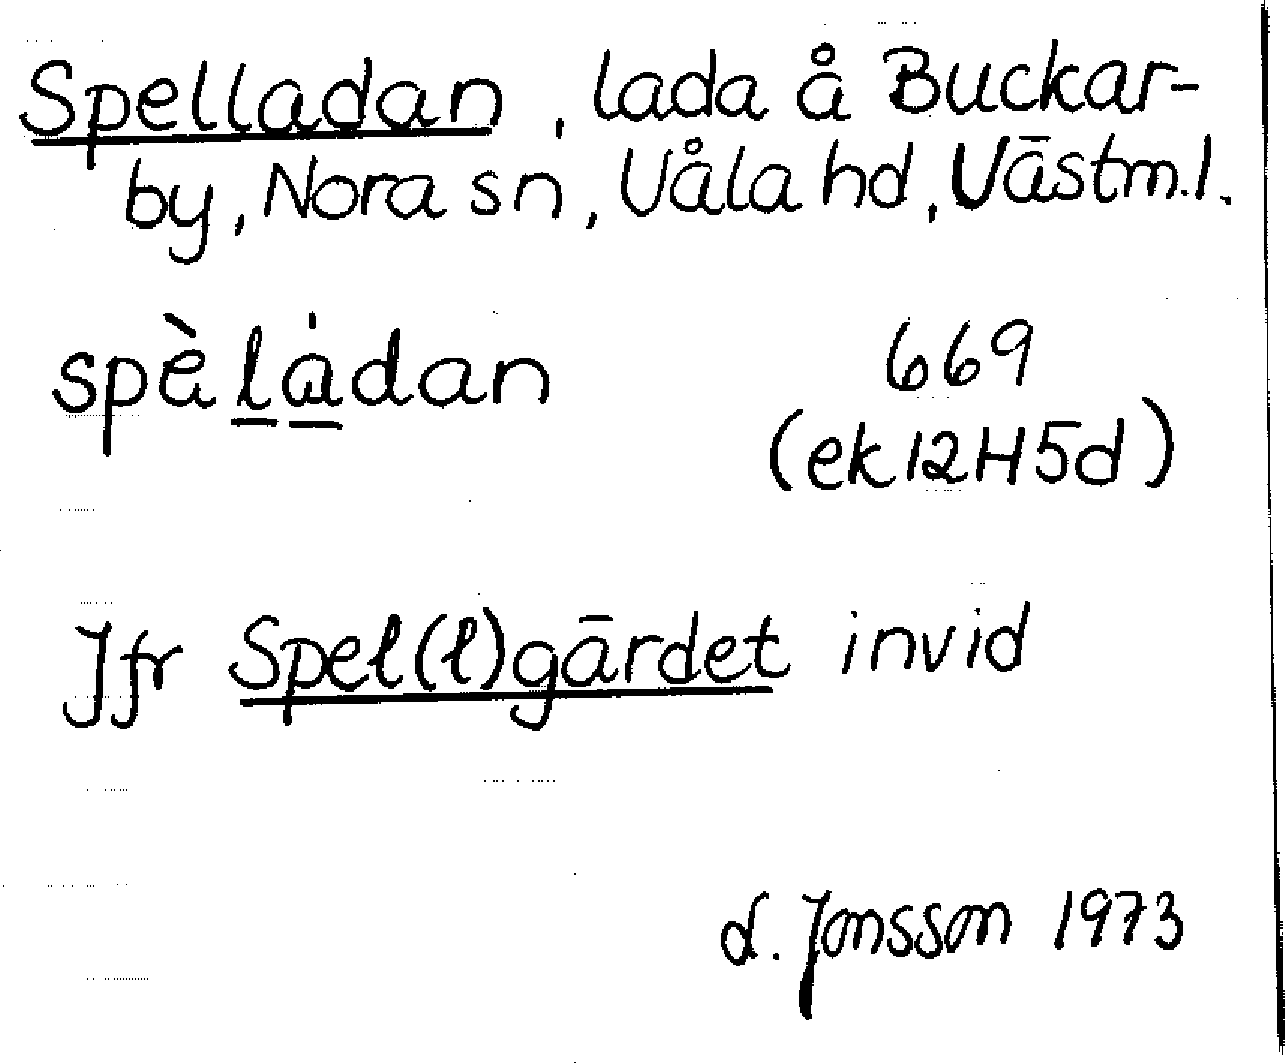 Spelladan, lada å Buckar-
by, Nora sn, Våla hd, Västm.l.
spè̀lȧdan 669
(ek 12H5d)
Jfr Spel(l)gärdet invid
d. Jonsson 1973